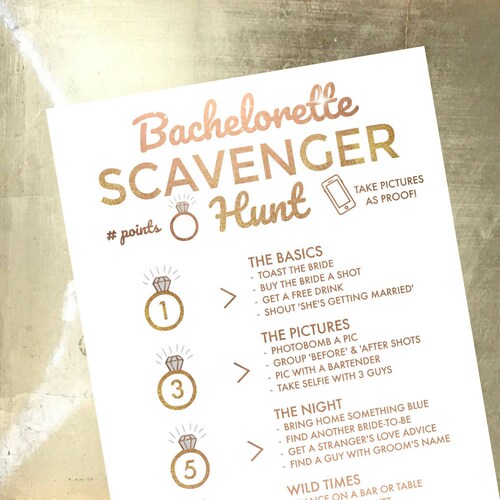 Bachelorette
SCAVENGER
Hunt
# points
TAKE PICTURES
AS PROOF!
1
>
THE BASICS
- TOAST THE BRIDE
- BUY THE BRIDE A SHOT
- GET A FREE DRINK
- SHOUT 'SHE'S GETTING MARRIED'
3
>
THE PICTURES
- PHOTOBOMB A PIC
- GROUP 'BEFORE' & 'AFTER SHOTS
- PIC WITH A BARTENDER
- TAKE SELFIE WITH 3 GUYS
5
>
THE NIGHT
- BRING HOME SOMETHING BLUE
- FIND ANOTHER BRIDE-TO-BE
- GET A STRANGER'S LOVE ADVICE
- FIND A GUY WITH GROOM'S NAME
WILD TIMES
ON A BAR OR TABLE